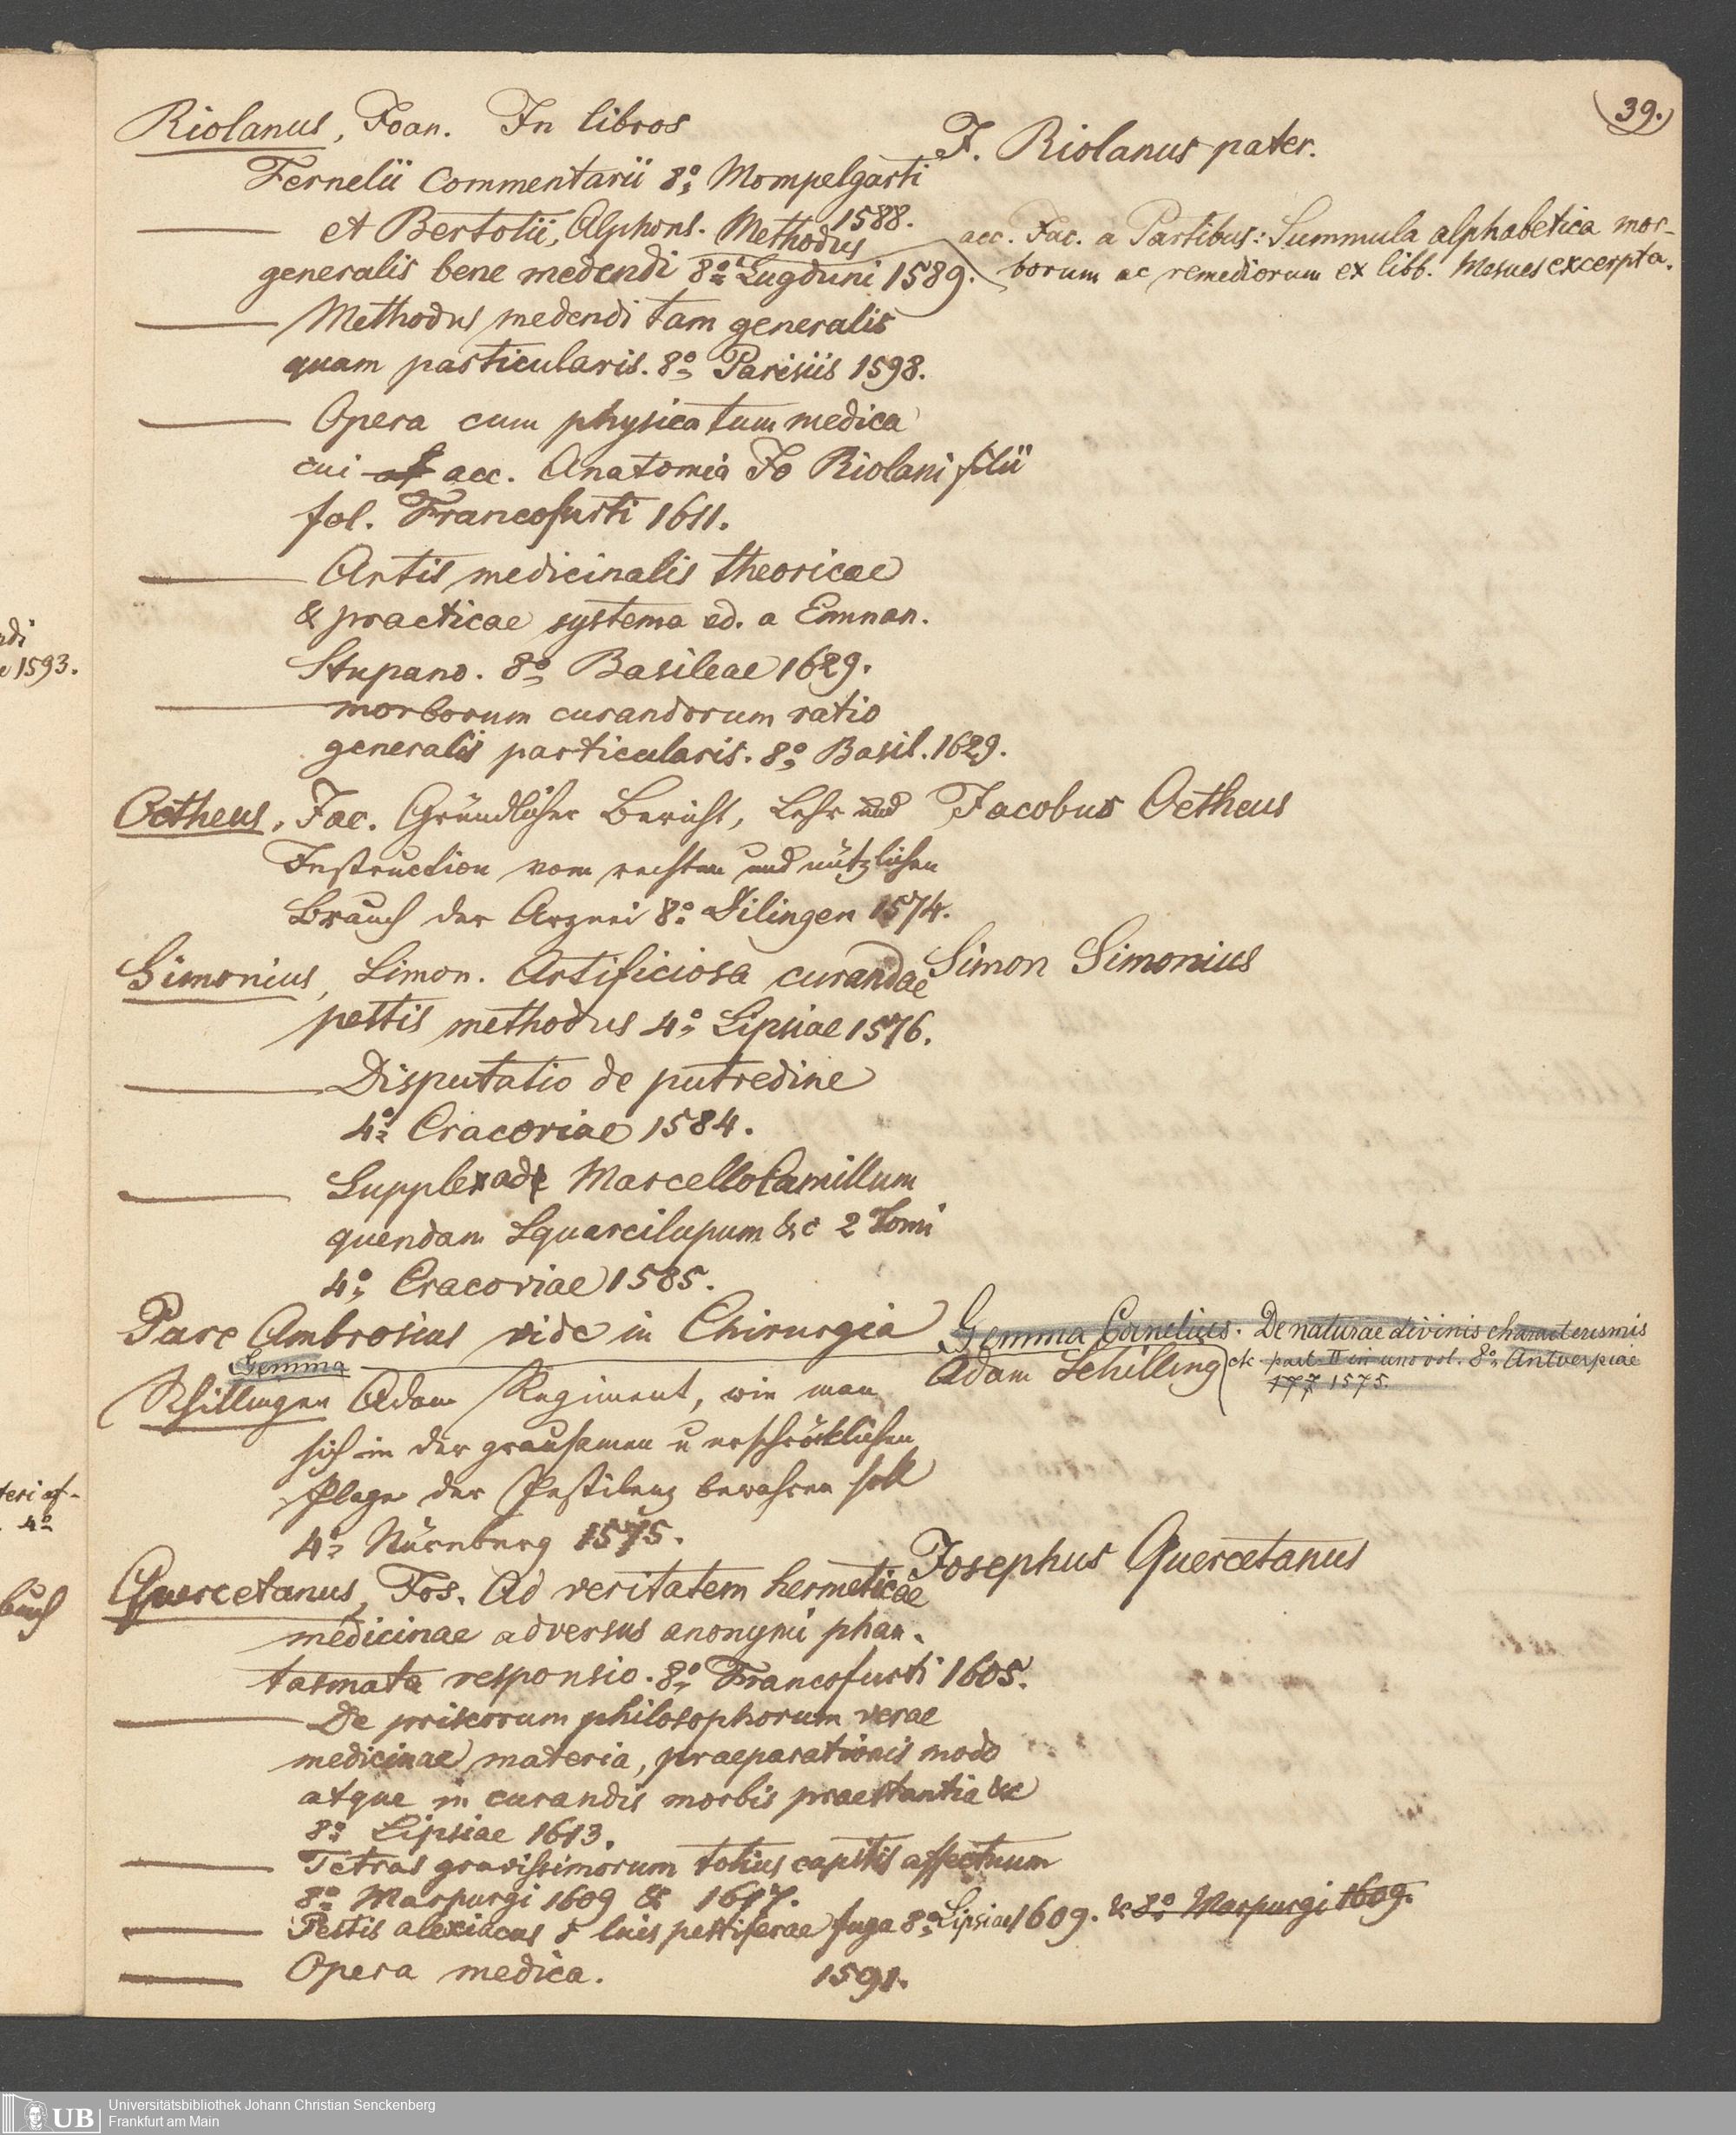 39.
Riolanus, Joan. In libros
Fernelii Commentarii 8o Mompelgarti
1588.
et Bertotii, Alphons. Methodus
generalis bene medendi 8o Lugduni 1589.
Methodus medendi tam generalis
quam particularis. 8o Parisiis 1598.
Opera cum physica tum medica
cui acc. Anatomia Jo Riolani filii
fol. Francofurti 1611.
Artis medicinalis theoricae
& practicae systema ed. a Emman.
Stupano. 8o Basileae 1629.
morborum curandorum ratio
generalis particularis. 8o Basil. 1629.
Oetheus, Jac. Gründlicher Bericht, Lehr und
Instruction vom rechten und nützlichen
Brauch der Arznei 8o Dilingen 1574.
Simonius, Simon. Artificiosa curandae
pestis methodus 4o Lipsiae 1576.
Disputatio de putredine
4o Cracoviae 1584.
Supplex ad Marcello Camillum
quendam Squarcilupum &c 2 Tomi
4o Cracoviae 1585.
Pare Ambrosius vide in Chirurgia
Gemma
Schillingen Adam Regiment, wie man
sich in der grausamen u erschröcklichen
Plage der Pestilenz bewahren soll
4o Nürnberg 1575.
Quercetanus, Jos. Ad veritatem hermeticae
medicinae adversus anonymi phan-
tasmata responsio. 8o Francofurti 1605.
De priscorum philosophorum verae
medicinae materia, praeparationis modo
atque in curandis morbis praestantia &c
8o Lipsiae 1613.
Tetras gravissimorum totius capitis affectuum
8o Marpurgi 1609 & 1617.
Pestis alexiacus & luis pestiferae fuga 8o Lipsiae 1609. & 8o Marpurgi 1609.
Opera medica. 1591.
J. Riolanus pater.
acc. Jac. a Partibus: Summula alphabetica mor-
borum ac remediorum ex libb. Mesues excerpta.
Jacobus Oetheus
Simon Simonius
Gemma Cornelius. De naturae divinis characterismis
etc part. II in uno vol. 8o Antverpiae
177 1575.
Adam Schilling
Josephus Quercetanus
1593.
4o
UB
Universitätsbibliothek Johann Christian Senckenberg
Frankfurt am Main